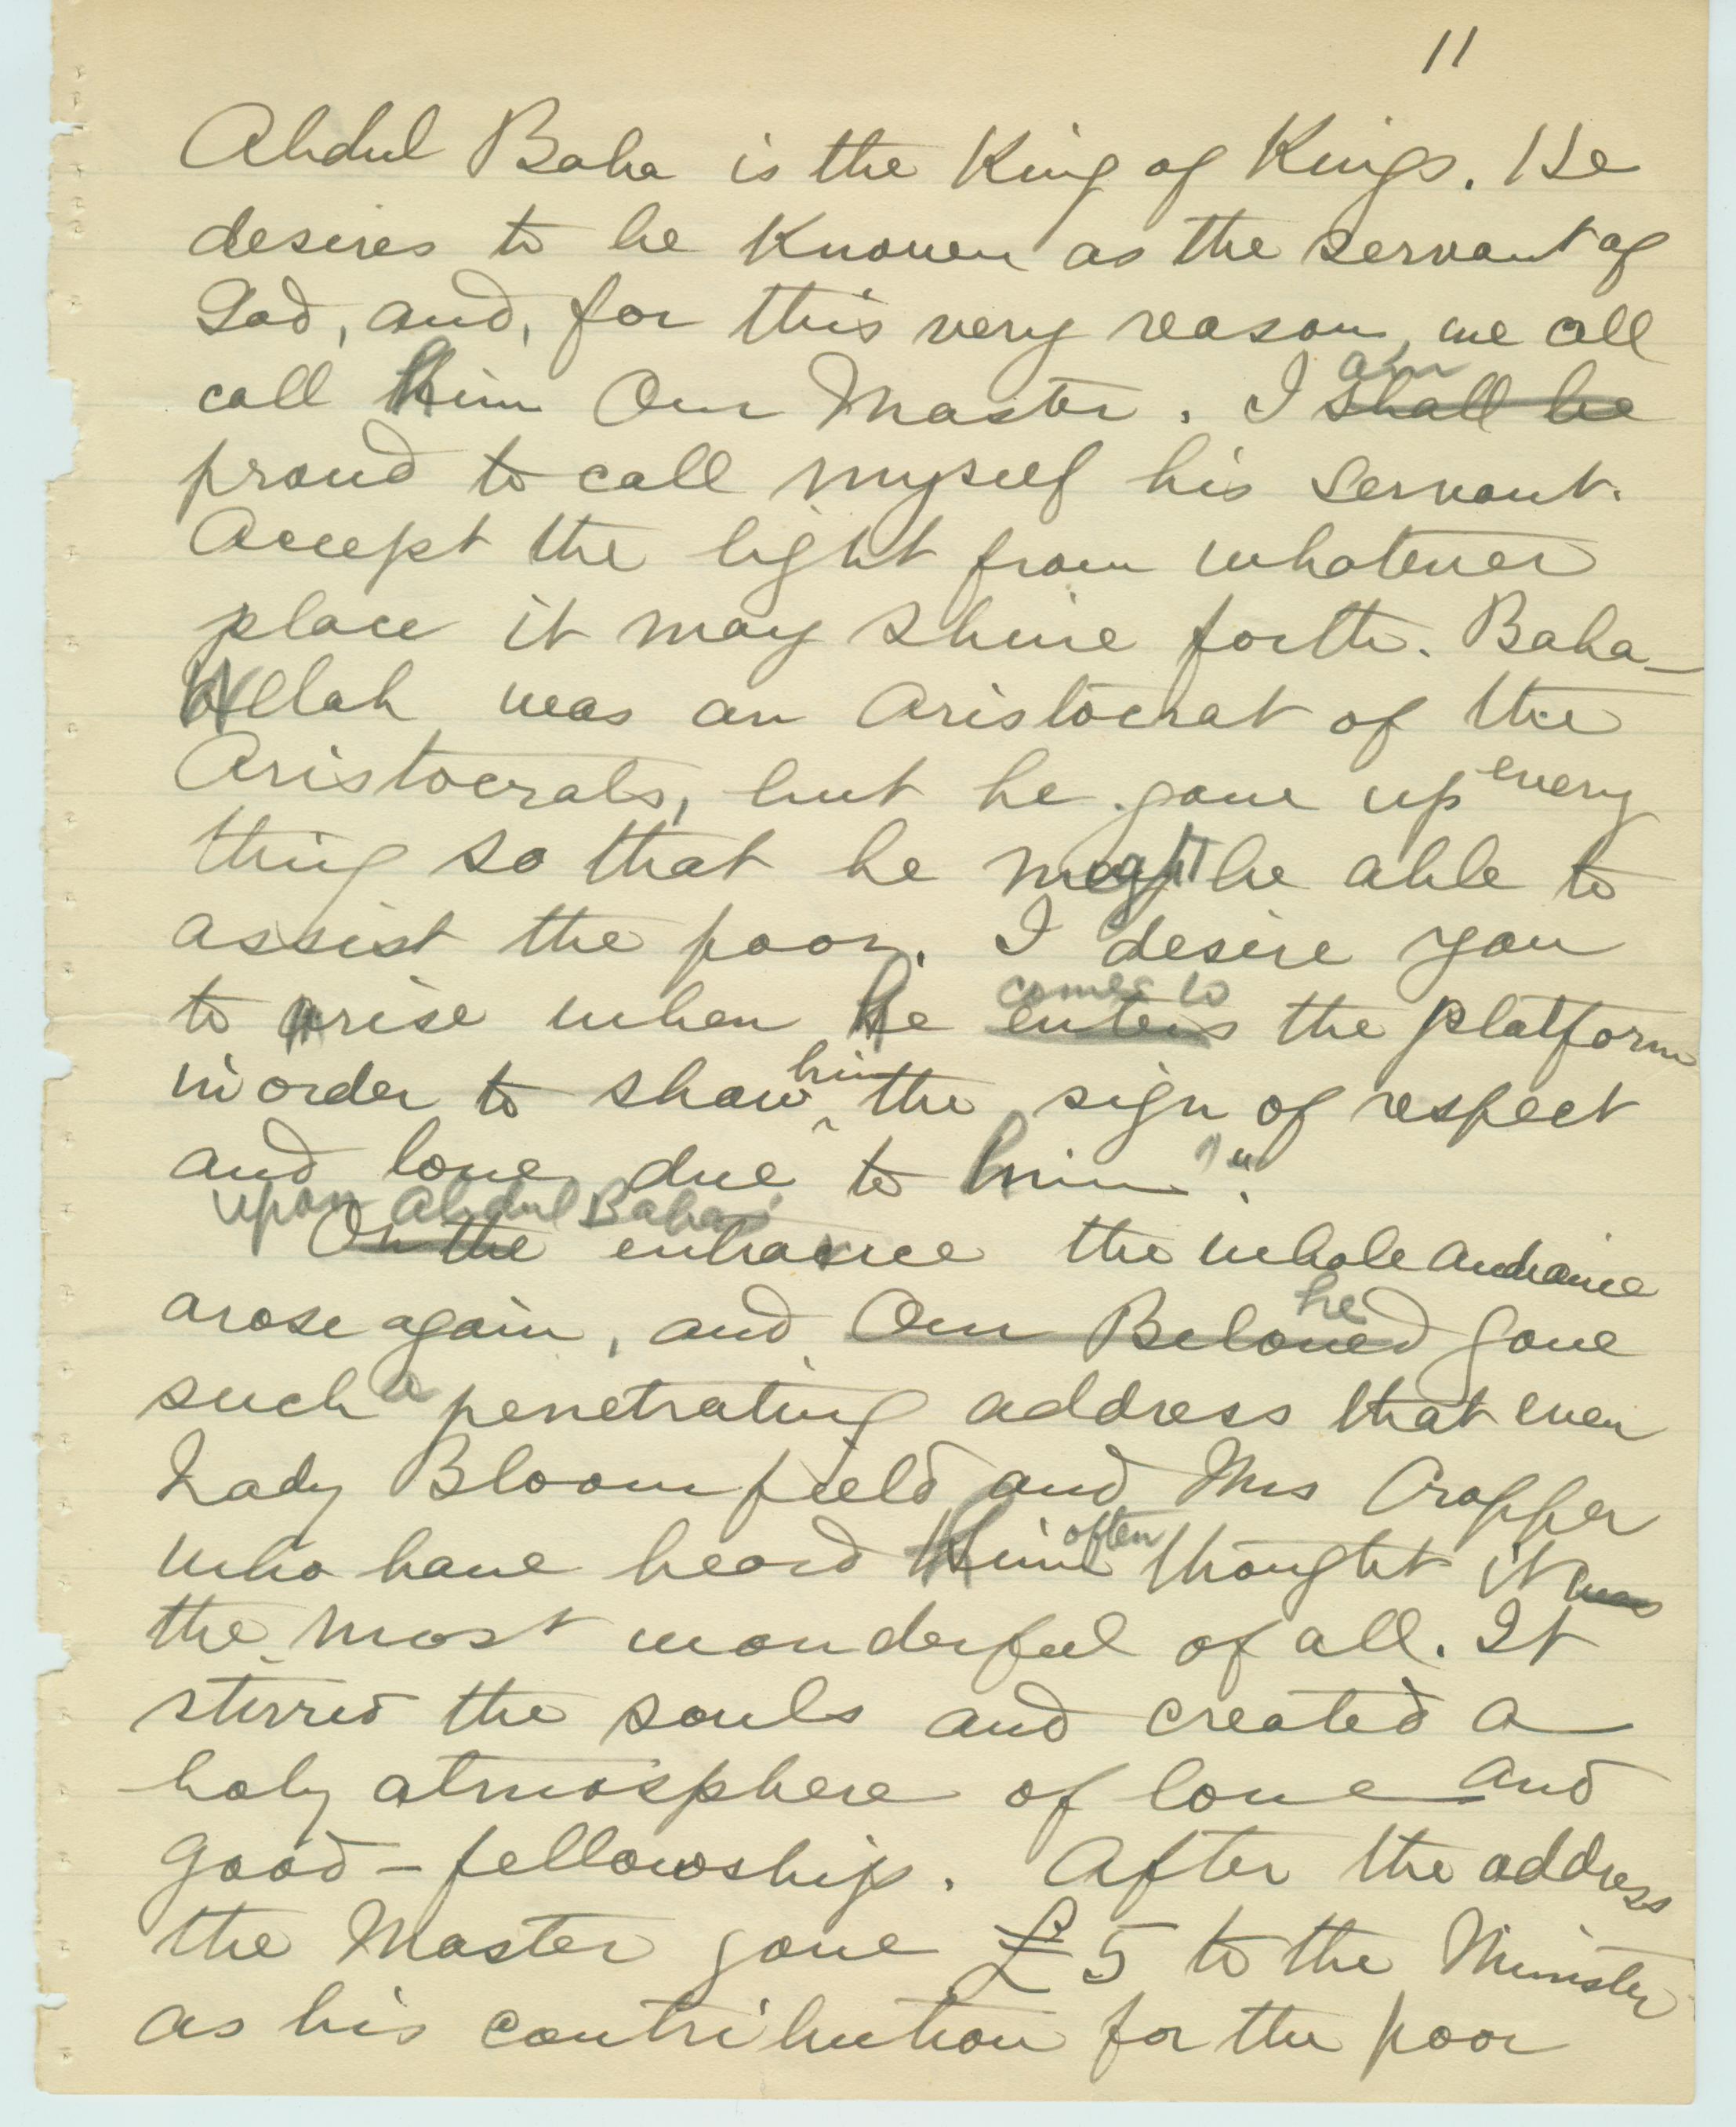 11
Abdul Baha is the King of Kings. He
desires to be Known as the servant of
God, and, for this very reason, we all
call him Our Master. I shall be am
proud to call myself his servant.
Accept the light from whatever
place it may shine forth. Baha-
Ullah was an Aristocrat of the
Aristocrats, but he gave up every
thing so that he might be able to
assist the poor. I desire you
to arise when he enters comes to the platform
in order to show him the sign of respect
and love due to him."
Upon Abdul Baha's
On the entrance the whole audience
arose again, and Our Beloved he gave
such a penetrating address that even
Lady Bloomfield and Mrs Cropper
who have heard him often thought it was
the most wonderful of all. It
stirred the souls and created a
holy atmosphere of love and
good-fellowship. After the address
the Master gave £5 to the Minister
as his contribution for the poor